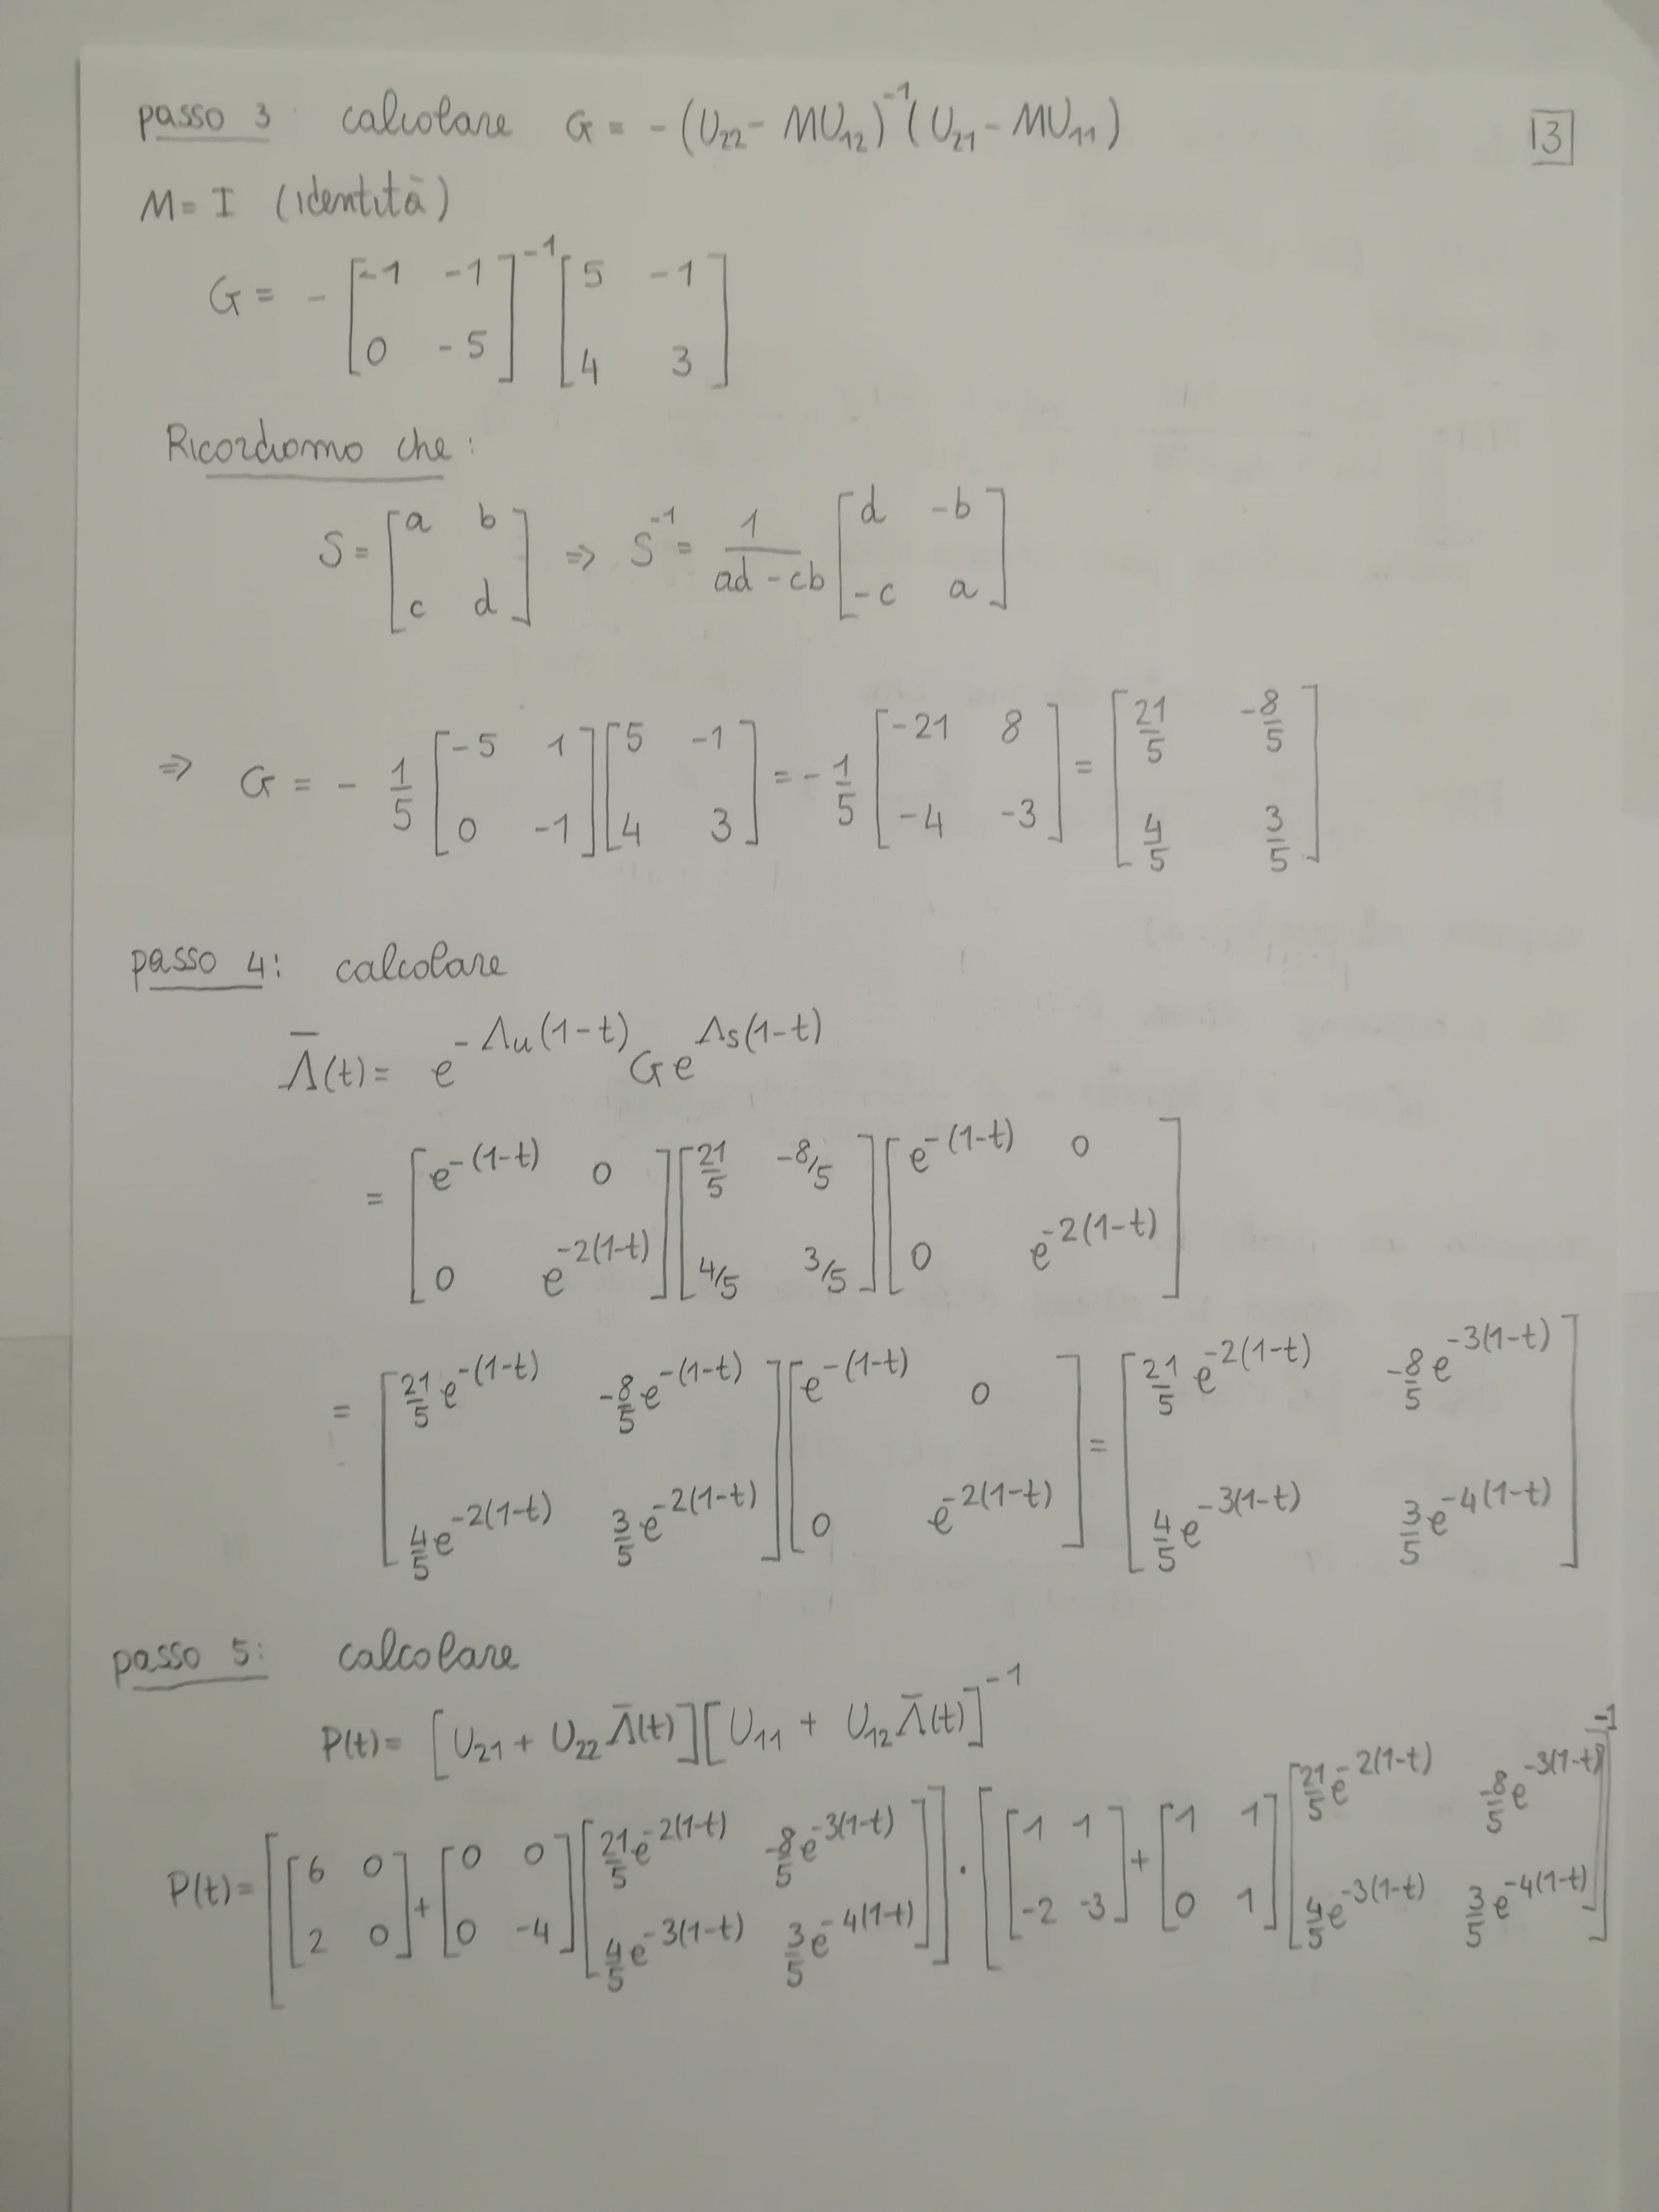 passo 3 calcolare G = - (U₂₂ - MU₁₂)⁻¹ (U₂₁ - MU₁₁)
13
M = I (identità)
G = - [-1 -1; 0 -5]⁻¹ [5 -1; 4 3]
Ricordiamo che:
S = [a b; c d] ⇒ S⁻¹ = 1/(ad - cb) [d -b; -c a]
⇒ G = - 1/5 [-5 1; 0 -1] [5 -1; 4 3] = - 1/5 [-21 8; -4 -3] = [21/5 -8/5; 4/5 3/5]
passo 4: calcolare
Λ̄(t) = e^{-Λu(1-t)} G e^{Λs(1-t)}
= [e^{-(1-t)} 0; 0 e^{-2(1-t)}] [21/5 -8/5; 4/5 3/5] [e^{-(1-t)} 0; 0 e^{-2(1-t)}]
= [21/5 e^{-(1-t)} -8/5 e^{-(1-t)}; 4/5 e^{-2(1-t)} 3/5 e^{-2(1-t)}] [e^{-(1-t)} 0; 0 e^{-2(1-t)}] = [21/5 e^{-2(1-t)} -8/5 e^{-3(1-t)}; 4/5 e^{-3(1-t)} 3/5 e^{-4(1-t)}]
passo 5: calcolare
P(t) = [U₂₁ + U₂₂ Λ̄(t)] [U₁₁ + U₁₂ Λ̄(t)]⁻¹
P(t) = [[6 0; 2 0] + [0 0; 0 -4] [21/5 e^{-2(1-t)} -8/5 e^{-3(1-t)}; 4/5 e^{-3(1-t)} 3/5 e^{-4(1-t)}]] · [[1 1; -2 -3] + [1 1; 0 1] [21/5 e^{-2(1-t)} -8/5 e^{-3(1-t)}; 4/5 e^{-3(1-t)} 3/5 e^{-4(1-t)}]]⁻¹